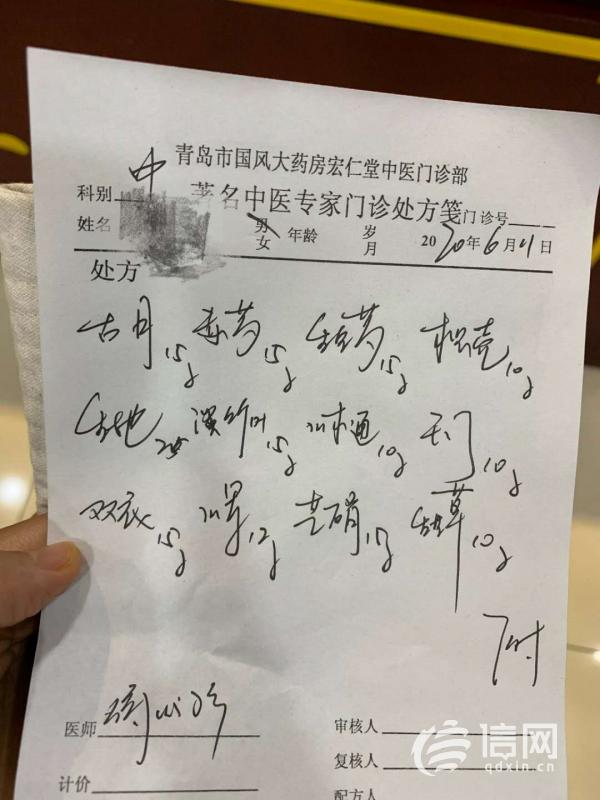 青岛市国风大药房宏仁堂中医门诊部
科别 中 著名中医专家门诊处方笺 门诊号
姓名 男 女 年龄 岁 月 2020年6月11日
处方
古月15g 赤芍15g 生白芍15g 枳壳10g
生地 淡竹叶15g 川木通10g 天门10g
双衣15g 川军12g 芒硝15g 甘草10g
7付
医师 审核人
复核人
计价 配方人
信网
qdxin.cn